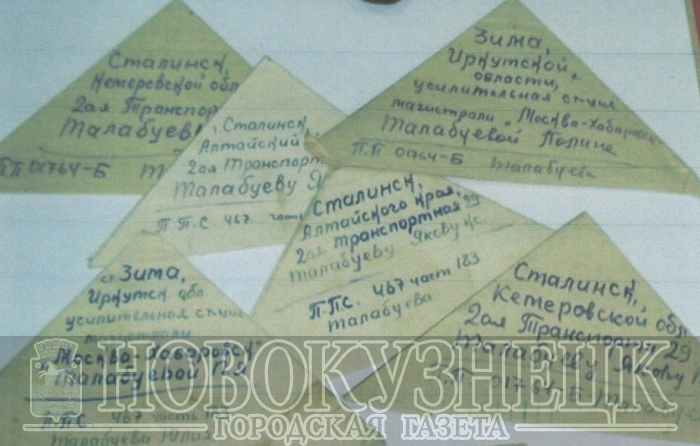 Сталинск,
Кемеровской обл
2ая Транспор
Талабуеву
ПП 01764-Б
Зима,
Иркутской
области,
усилительная ст-ция
магистрали „Москва-Хабаровск
Талабуевой Полине
П.П 01764-Б Талабуева
Сталинск,
Алтайский
2ая Транспорт
Талабуеву Я
П.П.С. 467 часть
Сталинск,
Алтайского края,
2ая Транспортная 29
Талабуеву Якову
П.П.С. 467 част 183
Талабуева
ст. Зима,
Иркутск обл
усилительная ст-ция
магистрали
"Москва-Хабаровск"
Талабуевой П.Я
П.П.С. 467 часть
Талабуева Юлия
Сталинск,
Кемеровской обл
2ая Транспортн 29
Талабуеву Якову
П.П 01764-Б
НОВОКУЗНЕЦК
ГОРОДСКАЯ ГАЗЕТА